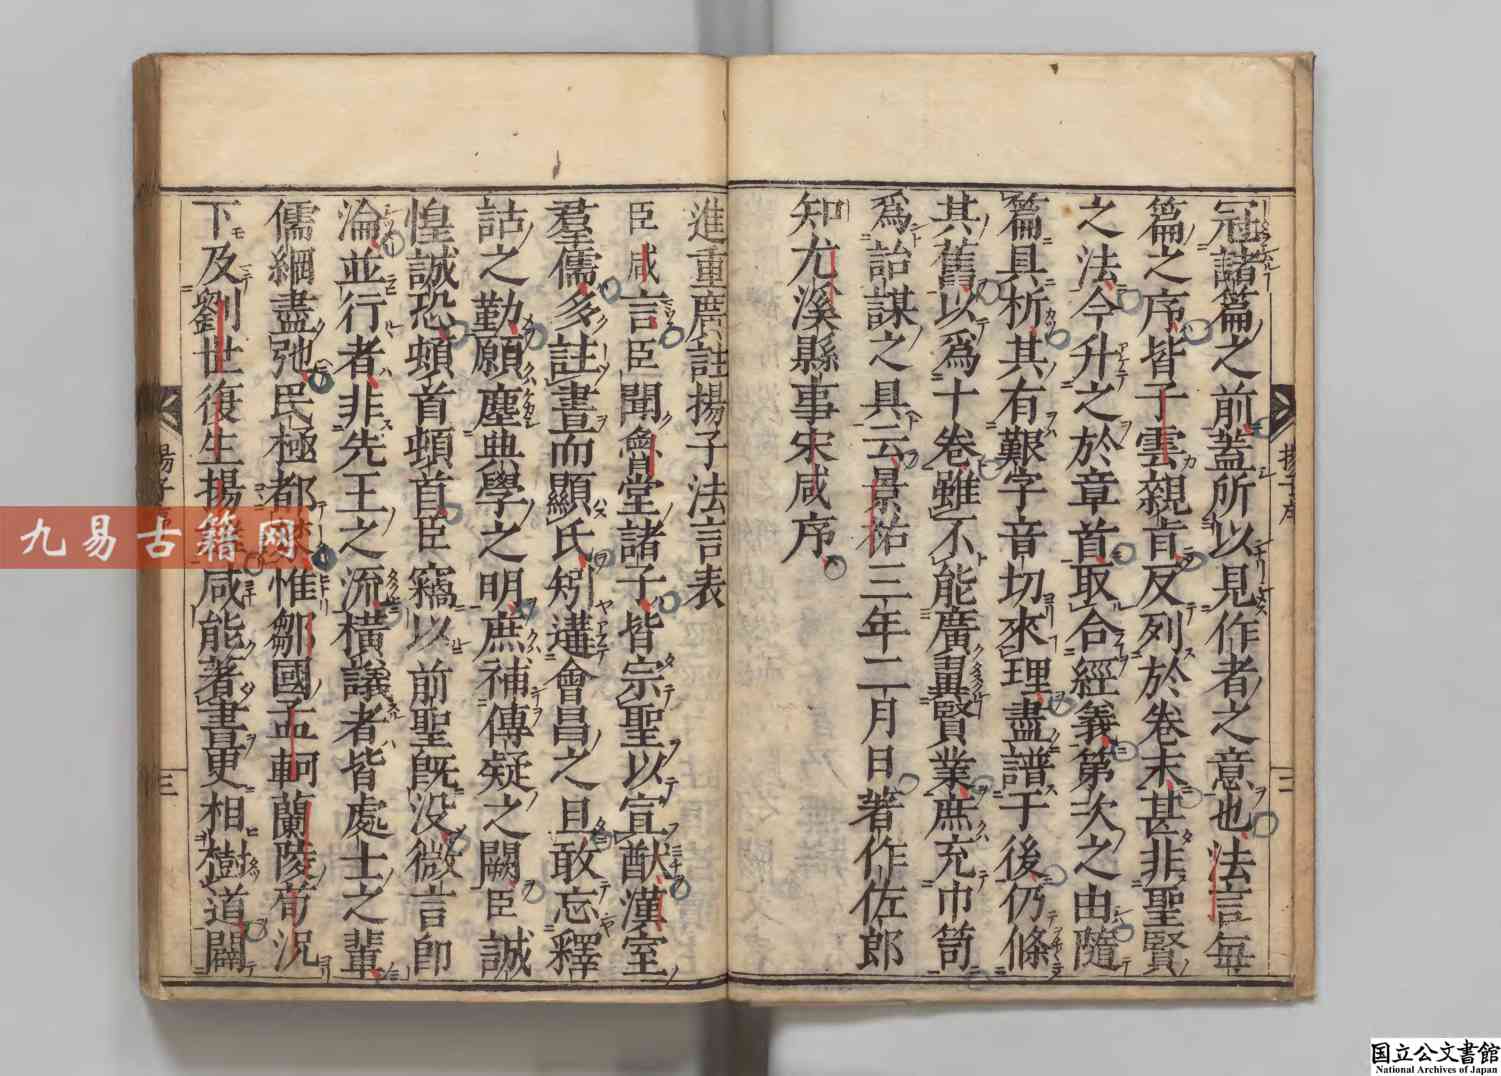 冠諸篇之前蓋所以見作者之意也法言每
篇之序皆子雲親肯反列於卷末甚非聖賢
之法今升之於章首取合經義第次之由隨
篇具析其有艱字音切來理盡譜于後仍條
其舊以爲十卷雖不能廣畀賢業庶充巾笥
爲詒謀之具云景祐三年二月日著作佐郎
知尤溪縣事宋咸序
揚子序
二
進重廣註揚子法言表
臣咸言臣聞魯堂諸子皆宗聖以宣猷漢室
羣儒多註書而顯氏矧遘會昌之旦敢忘釋
詁之勤願塵典學之明庶補傳疑之闕臣誠
惶誠恐頓首頓首臣竊以前聖旣没微言卽
淪並行者非先王之流橫議者皆處士之輩
儒綱盡弛民極都 惟鄒國孟軻蘭陵荀況
下及劉世復生揚 咸能著書更相樹道闢
三
九易古籍网
国立公文書館
National Archives of Japan